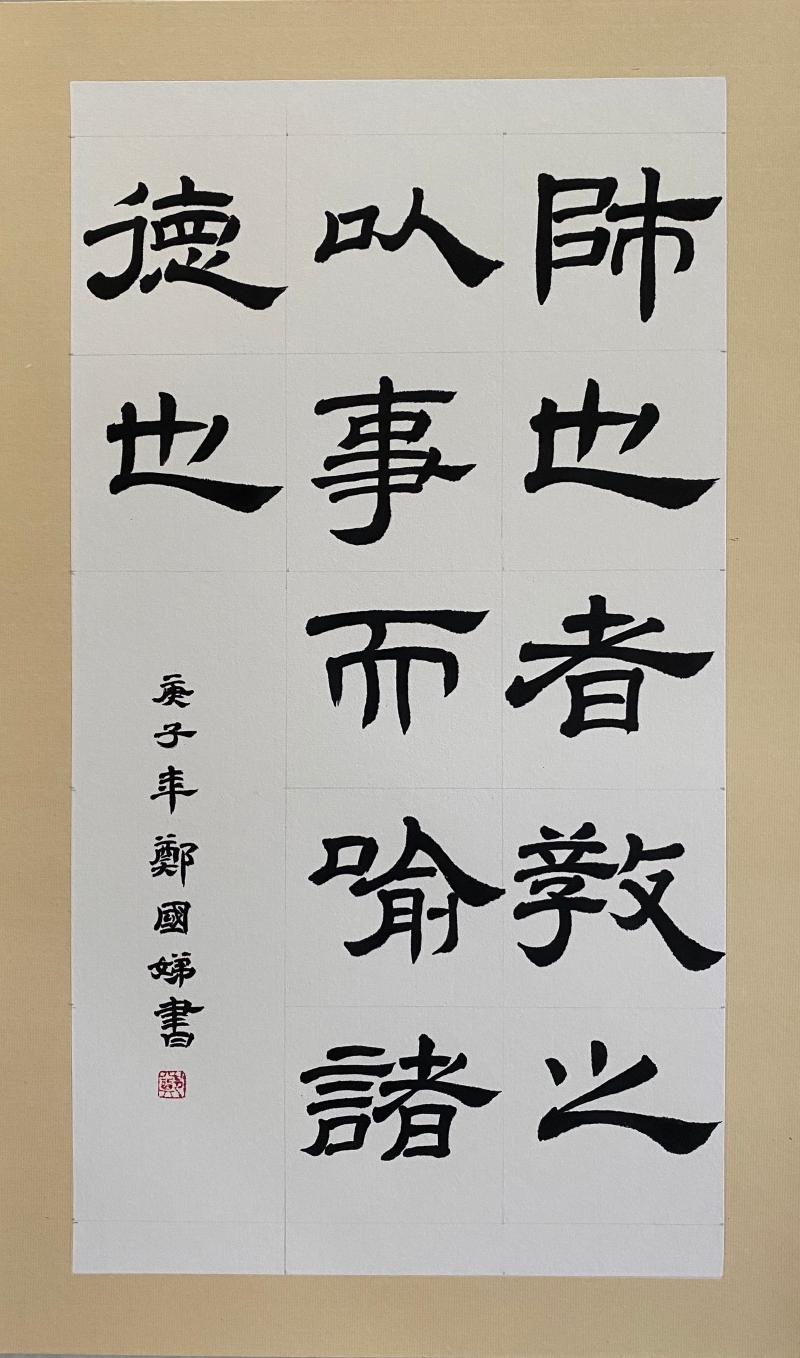 師也者教之
以事而喻諸
德也
庚子年鄭國娣書